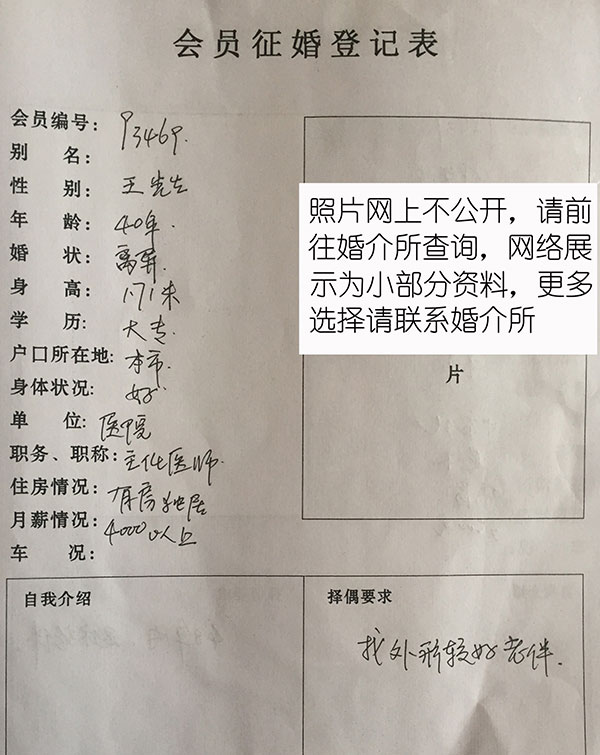 会员征婚登记表
会员编号: 93469.
别 名:
性 别: 王先生
年 龄: 40年.
婚 状: 离异
身 高: 1.71米
学 历: 大专.
户口所在地: 本市.
身体状况: 好
单 位: 医院
职务、职称: 主任医师.
住房情况: 有房独居
月薪情况: 4000以上
车 况:
照片网上不公开，请前
往婚介所查询，网络展
示为小部分资料，更多
选择请联系婚介所
片
自我介绍
择偶要求
找外形较好老伴.